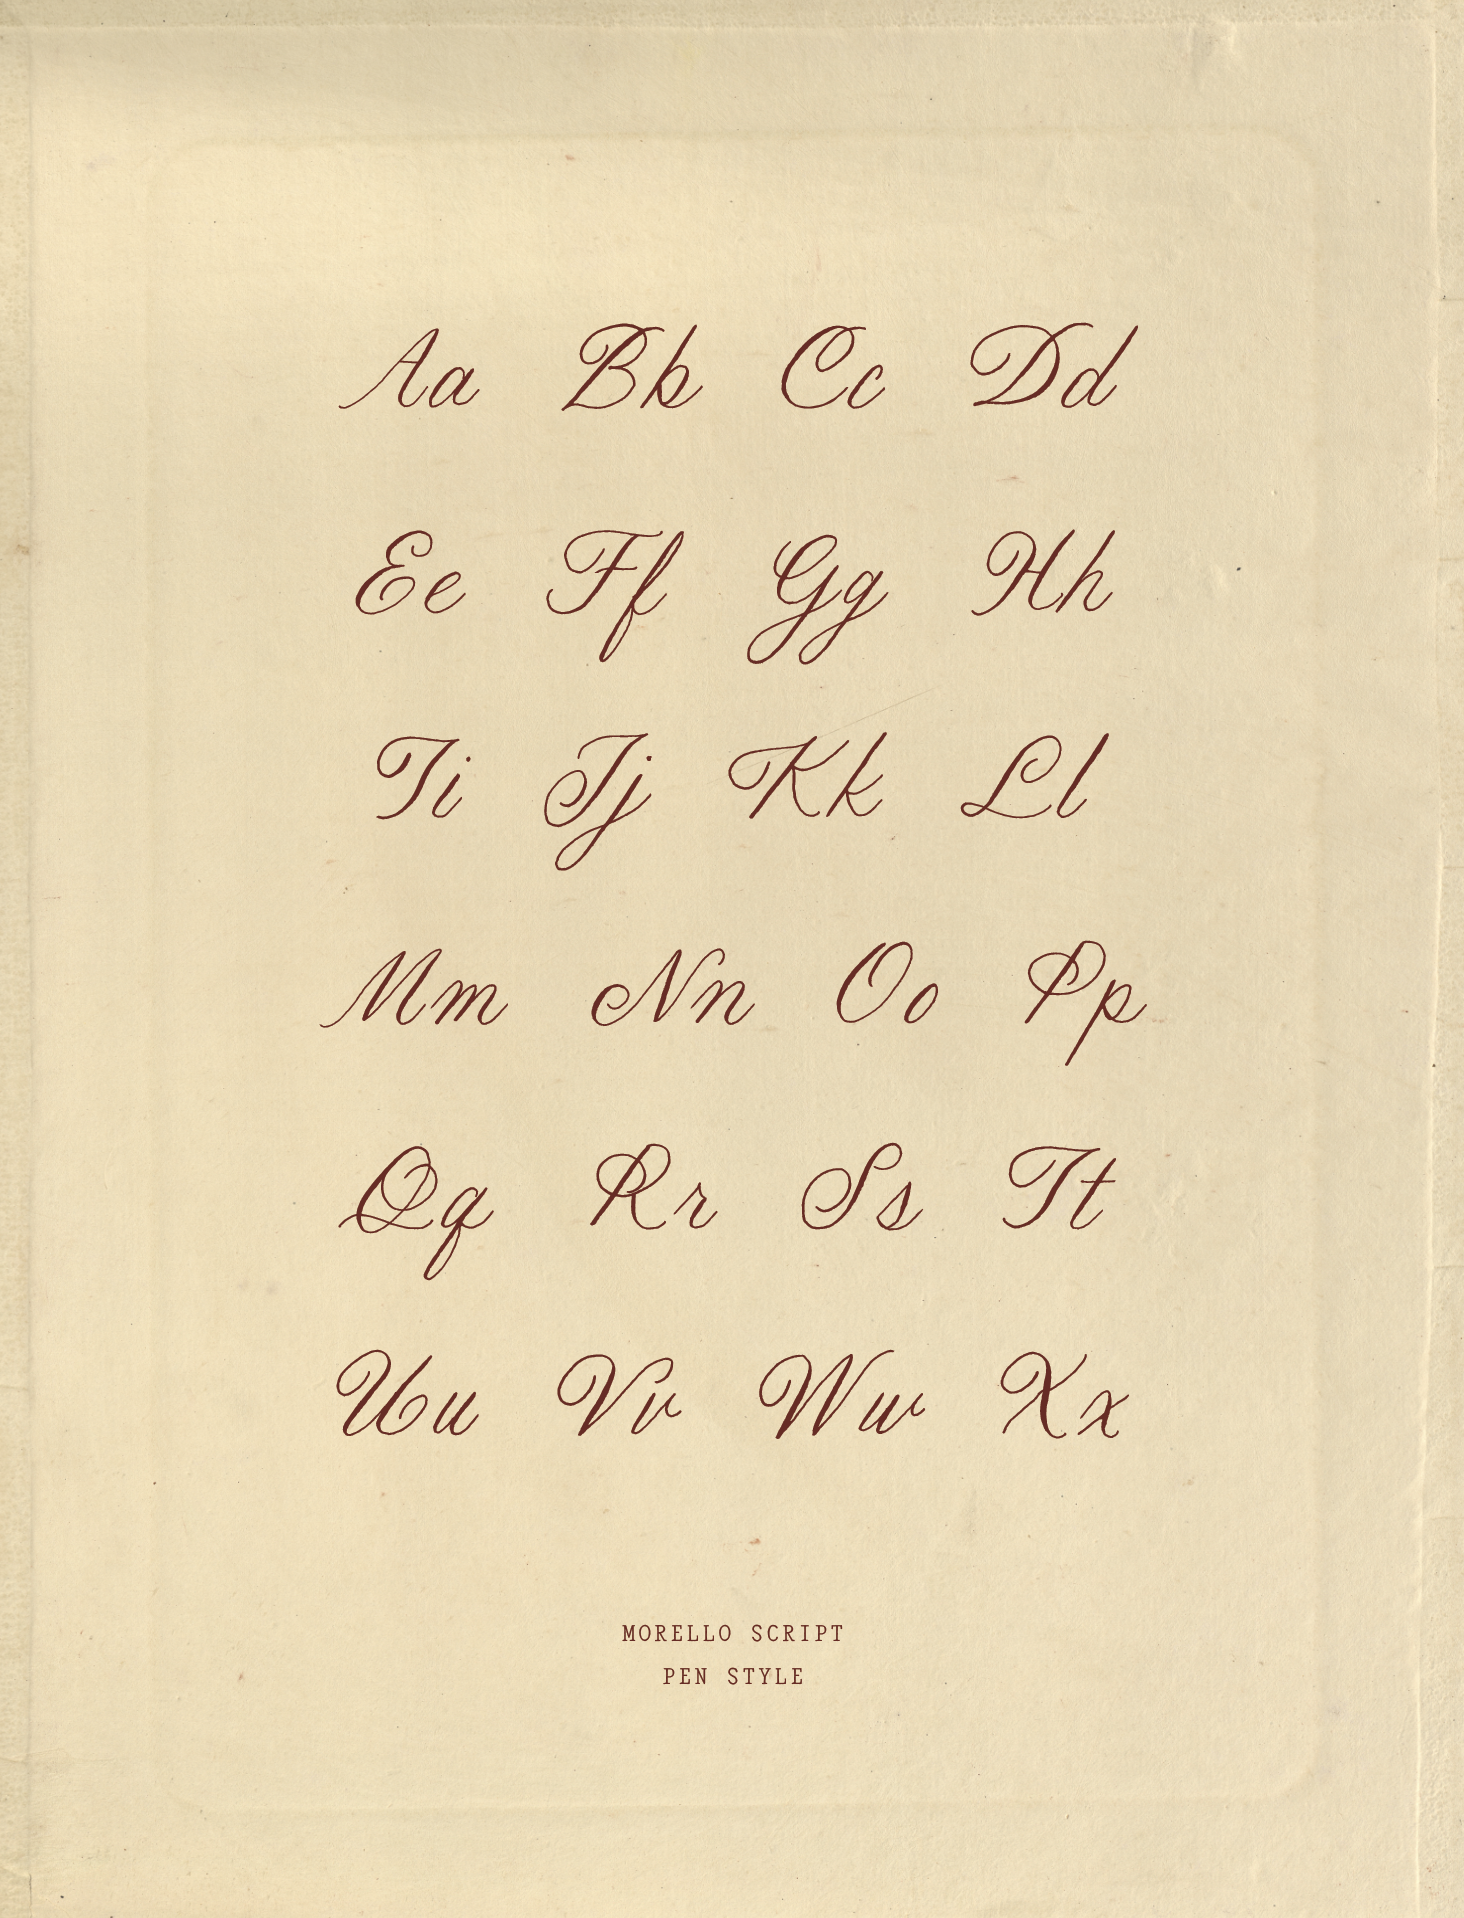 Aa Bb Cc Dd
Ee Ff Gg Hh
Ii Jj Kk Ll
Mm Nn Oo Pp
Qq Rr Ss Tt
Uu Vv Ww Xx
MORELLO SCRIPT
PEN STYLE